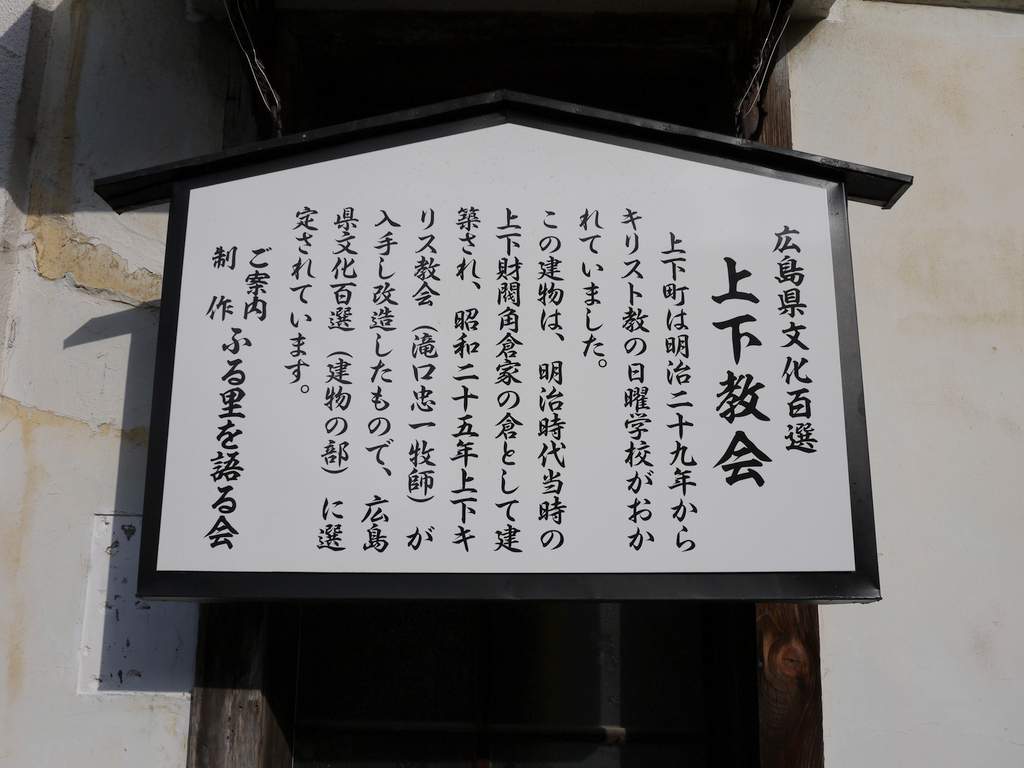 広島県文化百選
上下教会
上下町は明治二十九年から
キリスト教の日曜学校がおか
れていました。
この建物は、明治時代当時の
上下財閥角倉家の倉として建
築され、昭和二十五年上下キ
リス教会（滝口忠一牧師）が
入手し改造したもので、広島
県文化百選（建物の部）に選
定されています。
ご案内
制作
ふる里を語る会